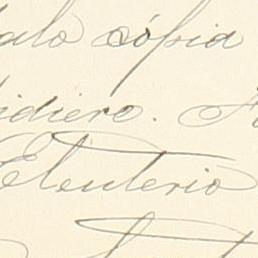 dalo cópia
pidiere.
Eleuterio